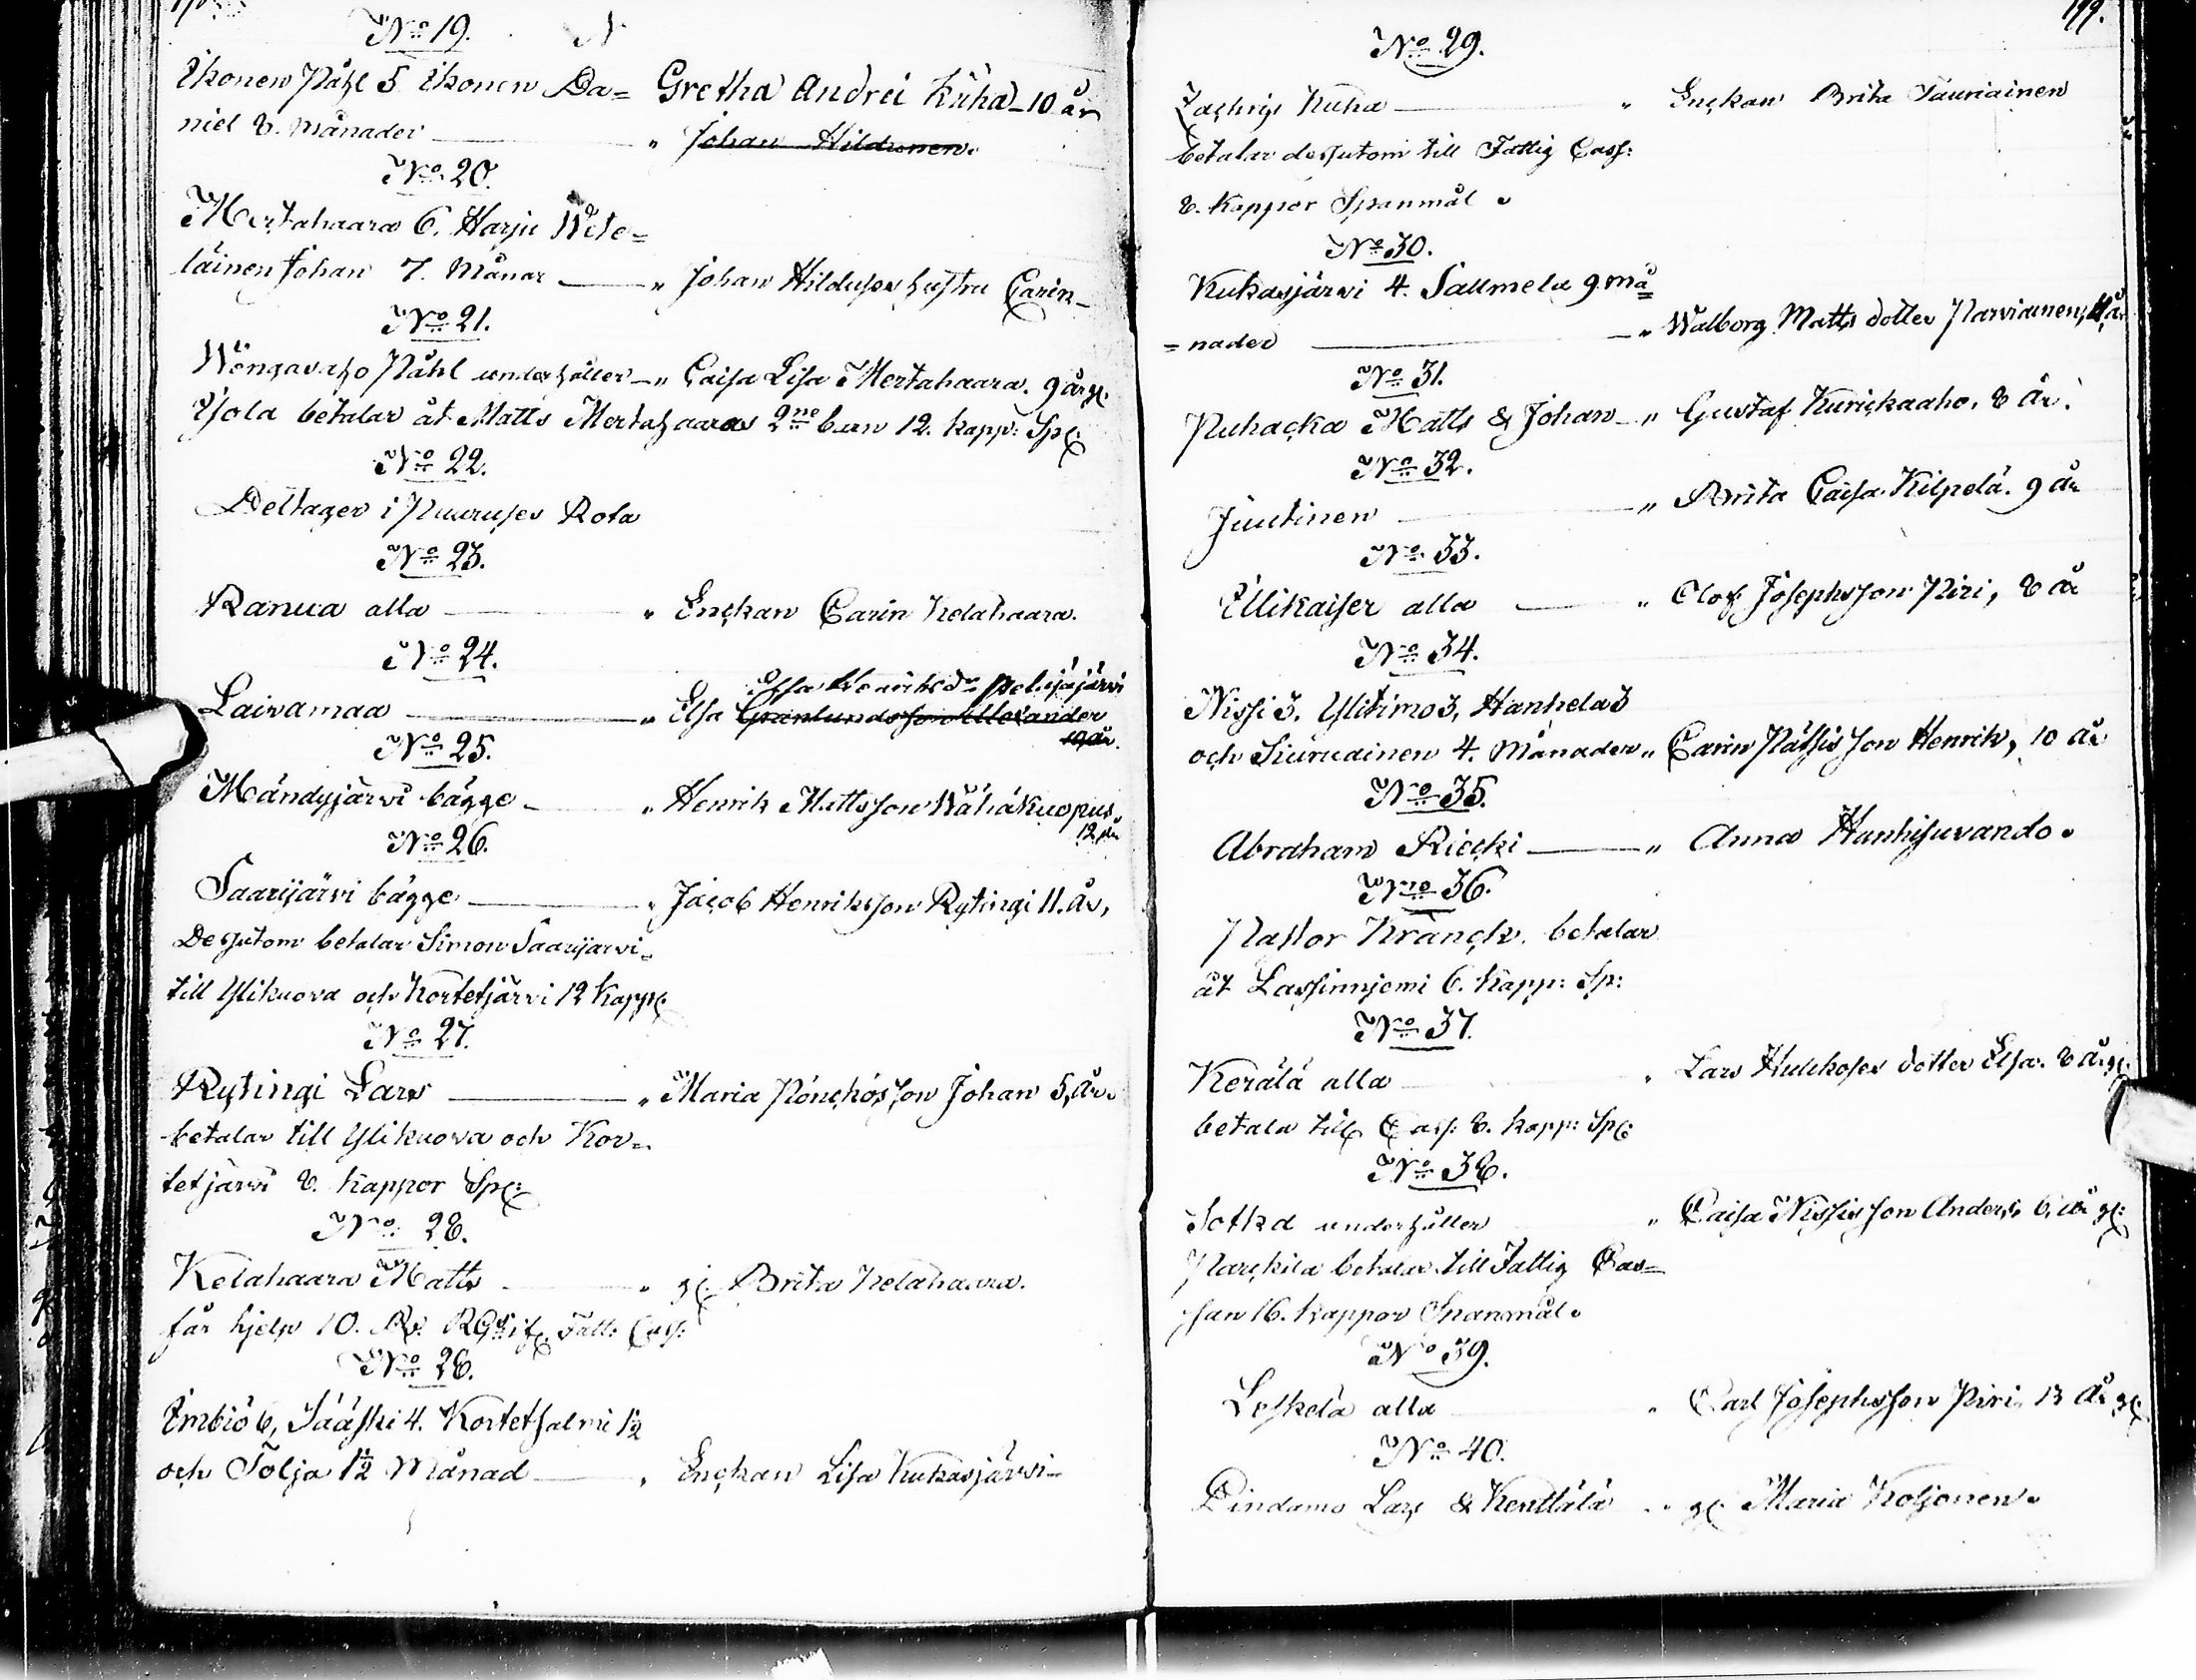 No 19.
Ikonen Påhl 5 Ikonen Da= Gretha Andrei Kuha - 10 år
niel 8. Månader " Johan Hildunen.
No 20.
Mertahaara 6. Harju Wete=
läinen Johan 7. Månar " Johan Hilduses hustru Carin
No 21.
Wöngavaho Påhl underhåller " Caisa Lisa Mertahaara. 9 år gl.
Yjola betalar åt Matts Mertahaaras 2ne barn 12. kapp: Spl:
No 22.
Deltager i Puuruses Rota
No 23.
Ranua alla " Enckan Carin Kelahaara.
No 24.
Elsa Henriksdr
Laivamaa " Elsa Granlunds son Alexander
10 år.
No 25.
Mändyjärvi bägge " Henrik Mattsson Wähäkuopus.
12 år
No 26.
Saarijärvi bägge " Jacob Henriksson Rytingi 11. år,
Dessutom betalar Simon Saarijärvi
till Ylikuova och Kortetjärvi 12 Kapp:
No 27.
Rytingi Lars " Maria Pönckös son Johan 5, år.
betalar till Ylikuova och Kor=
tetjärvi 8. kappor Spl:
No 28.
Kelahaara Matts " gl. Brita Kelahaara.
får hjelp 10. Fatt: Cass:
No 28.
Embiö 6, Sääski 4. Kortetsalmi 1½
och Tolja 1½ Månad " Enckan Lisa Kukasjärvi
199.
No 29.
Zachris Kuha " Enckan Brita Tauriainen
betalar dessutom till Fattig Cass:
8. Kappor Spanmål
No 30.
Kukasjärvi 4. Sallmela 9 må
=nader " Walborg Matts dotter Parviainen, 11 år
No 31.
Puhacka Matts & Johan " Gustaf Kurickaaho. 8 år.
No 32.
Juutinen " Brita Caisa Kilpelä. 9 år
No 33.
Illikaiser alla " Olof Josephsson Piri, 8 år
No 34.
Nissi 3. Ylitimo 3, Hanhela 3
och Siuruainen 4. Månader " Carin Pätsis son Henrik, 10 år
No 35.
Abraham Riecki " Anna Hanhisuvando.
No 36.
Pastor Kranck. betalar
åt Lassinnjemi 6. kapp: Sp:
No 37.
Kerälä alla " Lars Hulckoses dotter Elsa. 8 år gl.
betala till Cass: 8. kapp: Spl:
No 38.
Sotka underhåller " Caisa Nissis son Anders, 6. år gl:
Parckila betalar till Fattig Cas=
san 16. kappor Spanmål.
No 39.
Leskelä alla " Carl Josephsson Piri 13 år gl
No 40.
Lindamo Lars & Kenttälä " gl. Maria Koljonen.